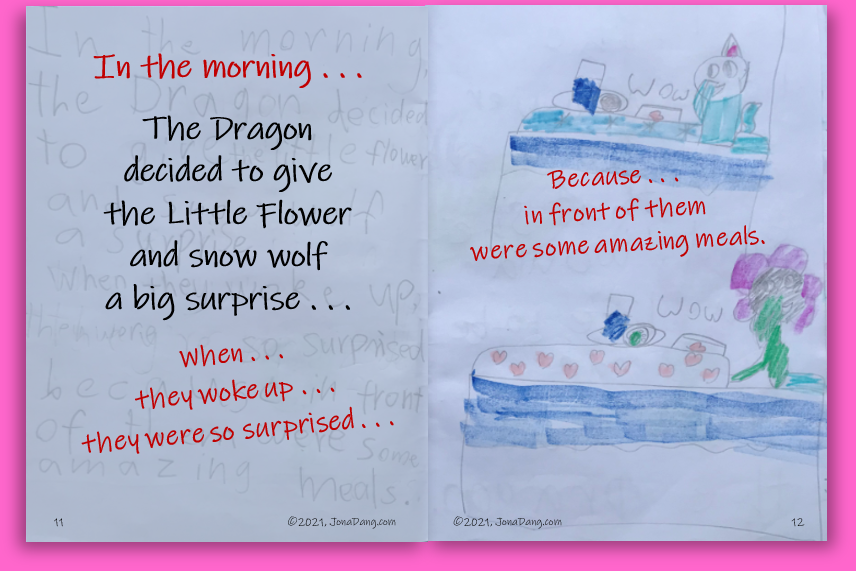 In the morning . . .
The Dragon
decided to give
the Little Flower
and snow wolf
a big surprise . . .
When . . .
they woke up . . .
they were so surprised . . .
11
©2021, JonaDang.com
WOW
Because . . .
in front of them
were some amazing meals.
WOW
©2021, JonaDang.com
12